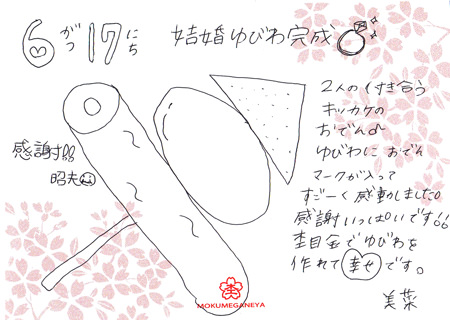 6がつ17にち 結婚ゆびわ完成
2人の付き合う
キッカケの
おでん♪
ゆびわに おでん
マークが入って
すごーく感動しました。
感謝いっぱいです!!
杢目金でゆびわを
作れて幸せです。
美菜
感謝!!
昭夫
MOKUMEGANEYA